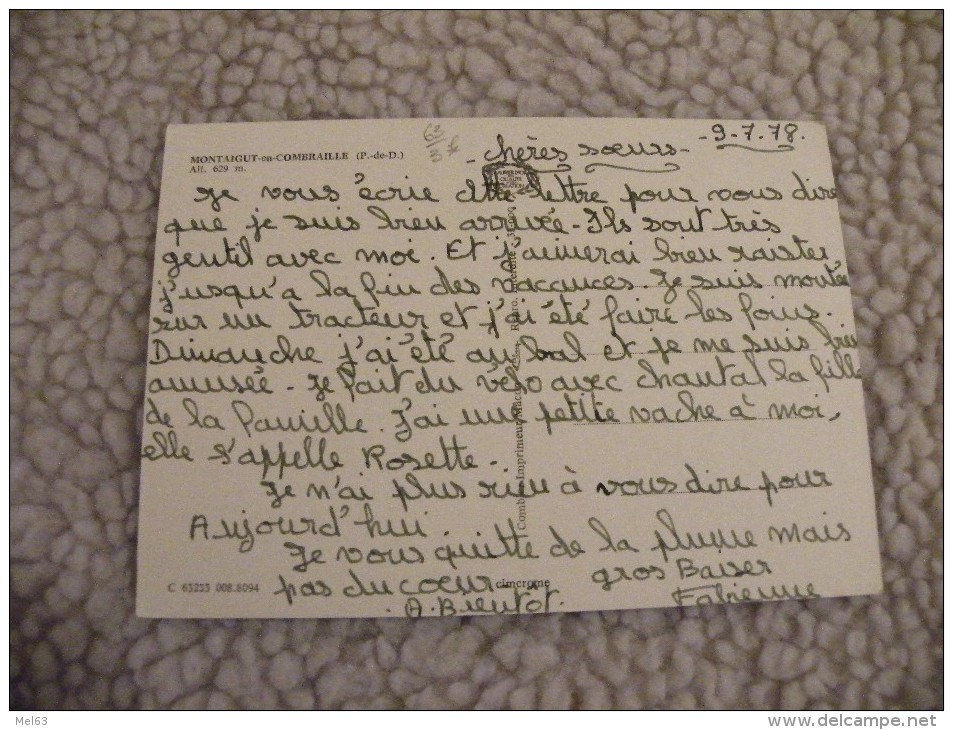 -9-7.78.
63
3€
MONTAIGUT-en-COMBRAILLE (P.-de-D.)
Alt. 629 m.
- chères sœurs -
Je vous écrie cette lettre pour vous dire
que je suis bien arrivée - Ils sont très
gentil avec moi. Et j'aimerai bien raister
j'usqu'a la fin des vacances. Je suis montée
sur un tracteur et j'ai été faire les foins.
Dimanche j'ai été au bal et je me suis bien
amusée - Je fait du vélo avec chantal la fille
de la famille. J'ai une petite vache à moi,
elle s'appelle Rosette -
Je n'ai plus rien à vous dire pour
Aujourd'hui.
Je vous quitte de la plume mais
pas du cœur
gros Baiser
A. Bientot.
Fabienne
C 63233 008.8094
cimcrome
Combier Imprimeur Mâcon
Mel63
www.delcampe.net